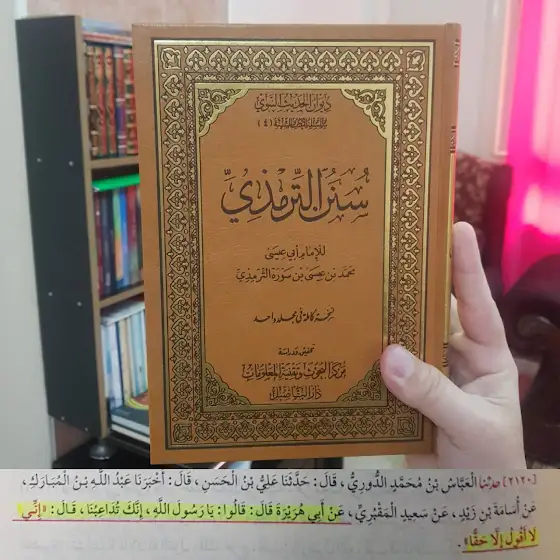 ديوان الحديث النبوي
(٤)
سُنَنُ التِّرمِذيِّ
للإمام أبي عيسى
محمد بن عيسى بن سورة الترمذي
نسخة كاملة في مجلد واحد
تحقيق ودراسة
مركز البحوث وتقنية المعلومات
دار التأصيل
[٢١٢٠] حدثنا الْعَبَّاسُ بْنُ مُحَمَّدٍ الدُّورِيُّ، قَالَ: حَدَّثَنَا عَلِيُّ بْنُ الْحَسَنِ، قَالَ: أَخْبَرَنَا عَبْدُ اللَّهِ بْنُ الْمُبَارَكِ،
عَنْ أُسَامَةَ بْنِ زَيْدٍ، عَنْ سَعِيدٍ الْمَقْبُرِيِّ، عَنْ أَبِي هُرَيْرَةَ قَالَ: قَالُوا: يَا رَسُولَ اللَّهِ، إِنَّكَ تُدَاعِبُنَا، قَالَ: «إِنِّي
لَا أَقُولُ إِلَّا حَقًّا».